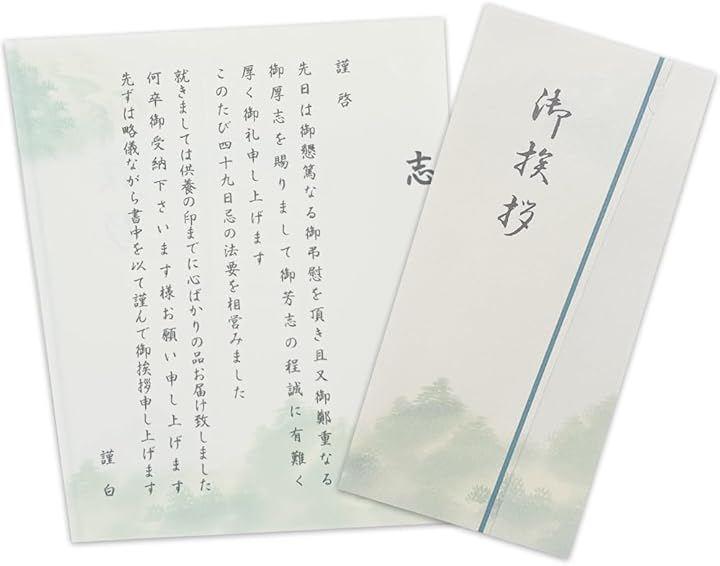 御挨拶
志
謹啓
先日は御懇篤なる御弔慰を頂き且又御鄭重なる
御厚志を賜りまして御芳志の程誠に有難く
厚く御礼申し上げます
このたび四十九日忌の法要を相営みました
就きましては供養の印までに心ばかりの品お届け致しました
何卒御受納下さいます様お願い申し上げます
先ずは略儀ながら書中を以て謹んで御挨拶申し上げます
謹白